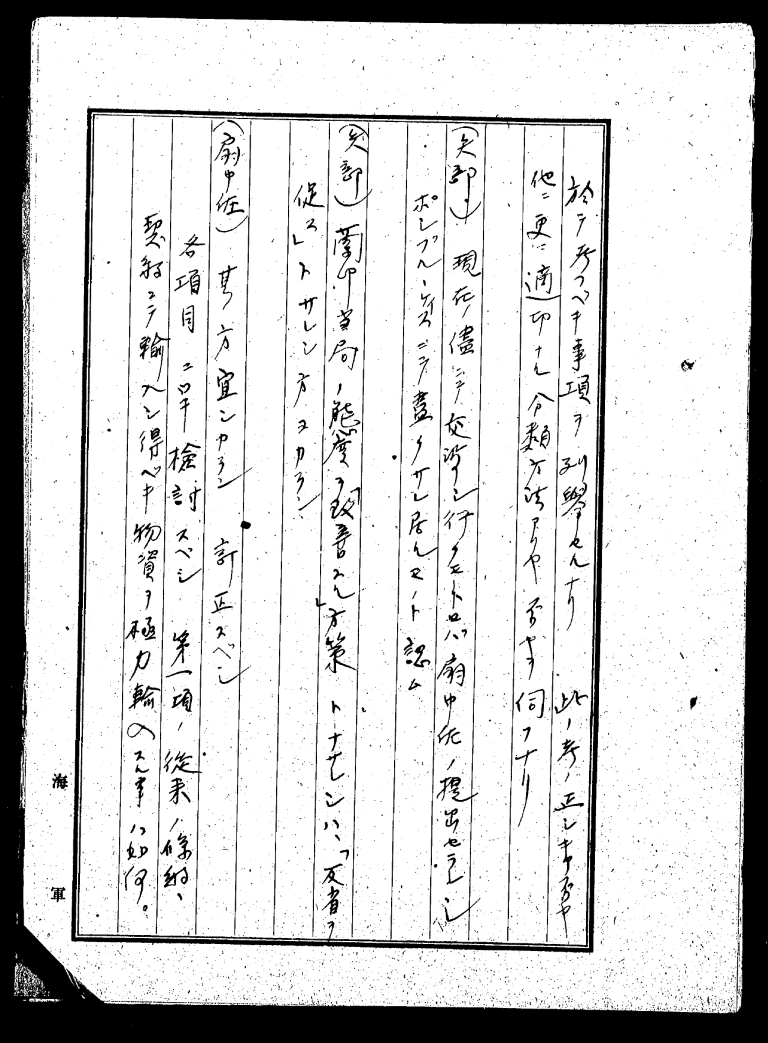 於テ考フベキ事項ヲ列擧セルナリ 此ノ考ノ正シキヤ否ヤ
他ニ更ニ適切ナル分類方法アリヤ否ヤヲ伺フナリ
(矢部) 現在ノ儘ニテ交渉シ行クモトセバ扇中佐ノ提出セラレシ
ポシブル・ケイスニテ盡クサレ居ルモノト認ム
(矢部) 蘭印当局ノ態度ヲ「改善スル」方策 トナサレンハ、「反省ヲ
促ス」トサレン方ヨカラン
(扇中佐) 其ノ方宜シカラン 訂正スベシ
各項目ニ日キ検討スベシ 第一項ノ從来ノ條約、
契約ニテ輸入シ得ベキ物資ヲ極力輸入スル事ハ如何。
海軍